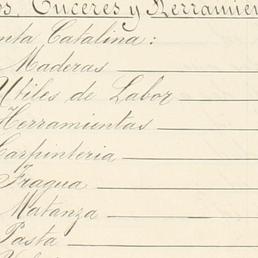 s, Enceres y Herramien
nta Catalina:
Maderas
Utiles de Labor
Herramientas
Carpinteria
Fragua
Matanza
Pasta